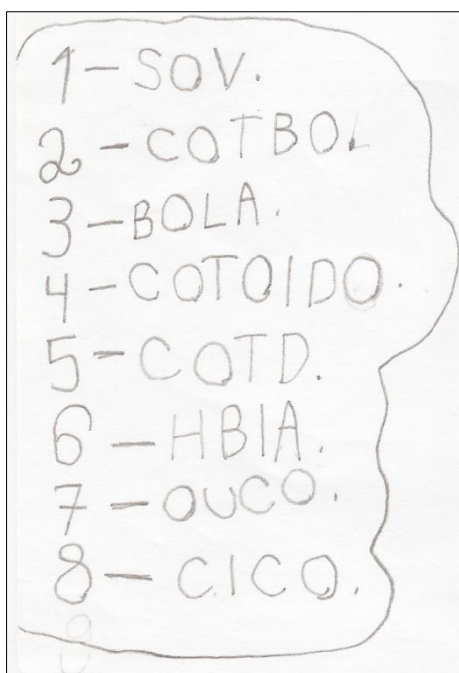 1-SOV.
2-COTBOL
3-BOLA.
4-COTOIDO.
5-COTD.
6-HBIA.
7-OUCO.
8-CICO.